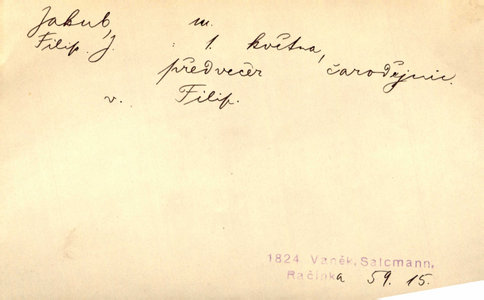 Jakub, m.
Filip. J. : 1. května,
předvečer čarodějnic.
v. Filip.
1824 Vaněk, Salcmann,
Račinka 59. 15.